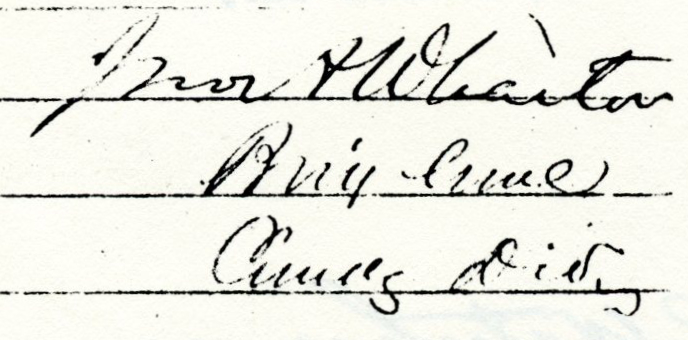 Jno A Wharton
Brig Genl
Comdg Div.